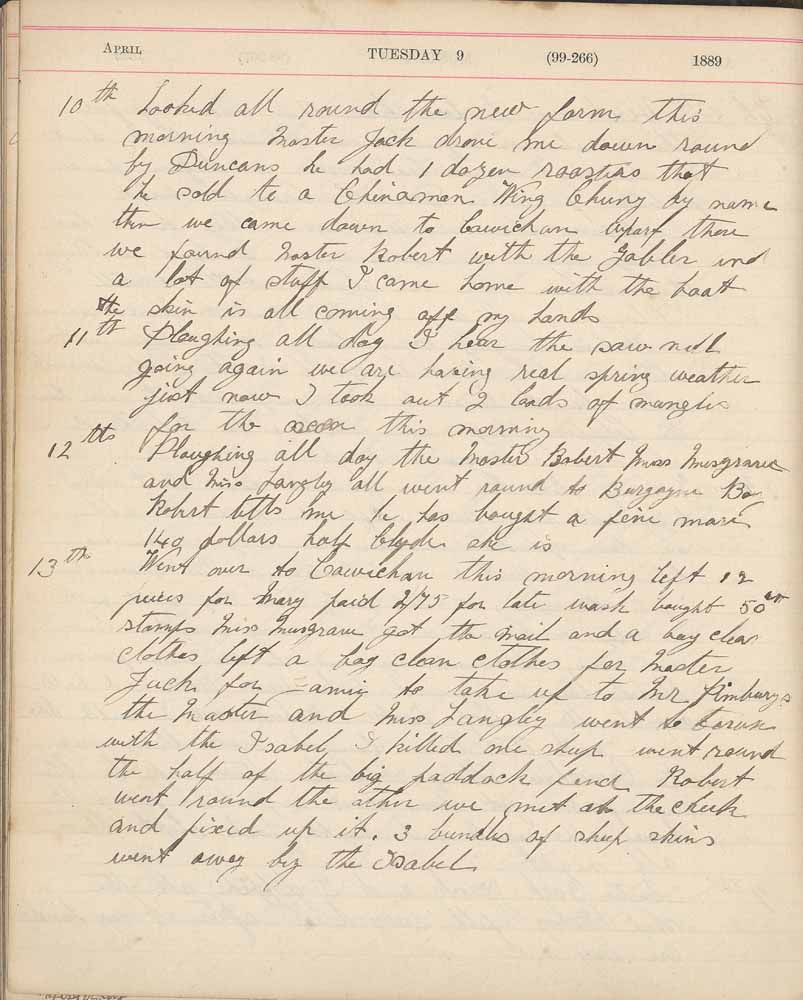 APRIL TUESDAY 9 (99-266) 1889
10th Looked all round the new farm this
morning Master Jack drove me down round
by Duncans he had 1 dozen roasters that
he sold to a Chinaman Wing Chung by name
then we came down to Cawichan wharf there
we found Master Robert with the Gabler and
a lot of stuff I came home with the boat
the skin is all coming off my hands
11th Ploughing all day I hear the saw mill
going again we are having real spring weather
just now I took out 2 loads of mangles
for the this morning
12th Ploughing all day the Master Robert Miss Musgrave
and Miss Langley all went round to Burgoyne Bay
Robert tells me he has bought a fine mare
140 dollars half Clyde she is
13th Went over to Cawichan this morning left 12
pieces for Mary paid 2/75 for late wash bought 50ct
stamps Miss Musgrave got the mail and a bag clean
clothes left a bag clean clothes for Master
Jack for to take up to Mr Pimburys
the Master and Miss Langley went to town
with the Isabel I killed one sheep went round
the half of the big paddock fence Robert
went round the other we met at the creek
and fixed up it. 3 bundles of sheep skins
went away by the Isabel